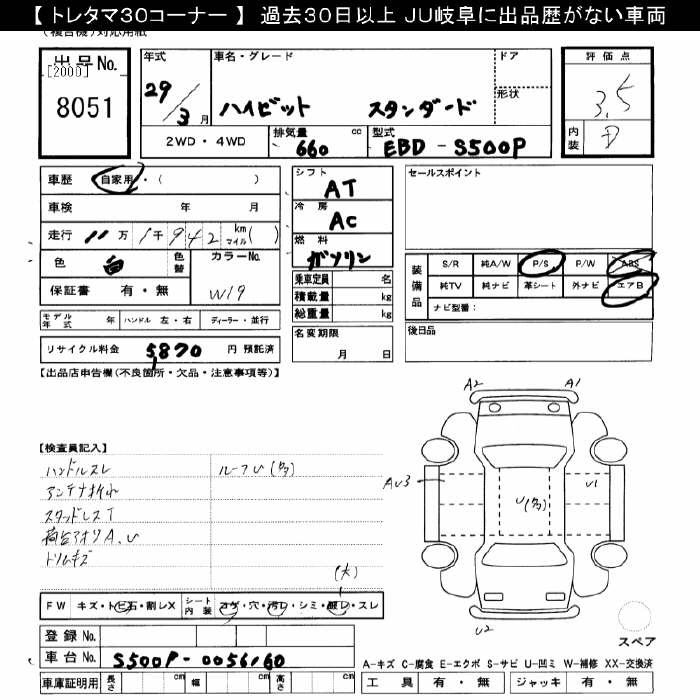 【 トレタマ30コーナー 】 過去30日以上 JU岐阜に出品歴がない車両
(複合機)対応用紙
出品No. [2000] 8051
年式 29/3月
車名・グレード ハイゼット スタンダード
ドア
形状
評価点 3.5
内装 D
2WD・4WD
排気量 660 cc
型式 EBD-S500P
車歴 自家用・( )
車検 年 月
走行 11万1千942 km マイル( )
色 白 色替 カラーNo. W19
保証書 有・無
シフト AT
冷房 AC
燃料 ガソリン
乗車定員 名
積載量 kg
総重量 kg
セールスポイント
装備品 S/R 純A/W P/S P/W ABS
純TV 純ナビ 革シート 外ナビ エアB
ナビ型番:
モデル年式 年 ハンドル 左・右 ディーラー・並行
名変期限 月 日
後日品
リサイクル料金 5,870 円 預託済
【出品店申告欄(不良箇所・欠品・注意事項等)】
【検査員記入】
ハンドルスレ ルーフU(多)
アンテナ折れ
スタッドレスT
荷台アオリA、U
トリムキズ
A2 A1
AU3 U(多) U1
U2
(大)
FW キズ・トビ石・割レX シート内装 コゲ・穴・汚レ・シミ・破レ・スレ
スペア
登録No.
車台No. S500P-0056160
A-キズ C-腐食 E-エクボ S-サビ U-凹ミ W-補修 XX-交換済
車庫証明用 長さ cm 幅 cm 高さ cm
工具 有・無 ジャッキ 有・無